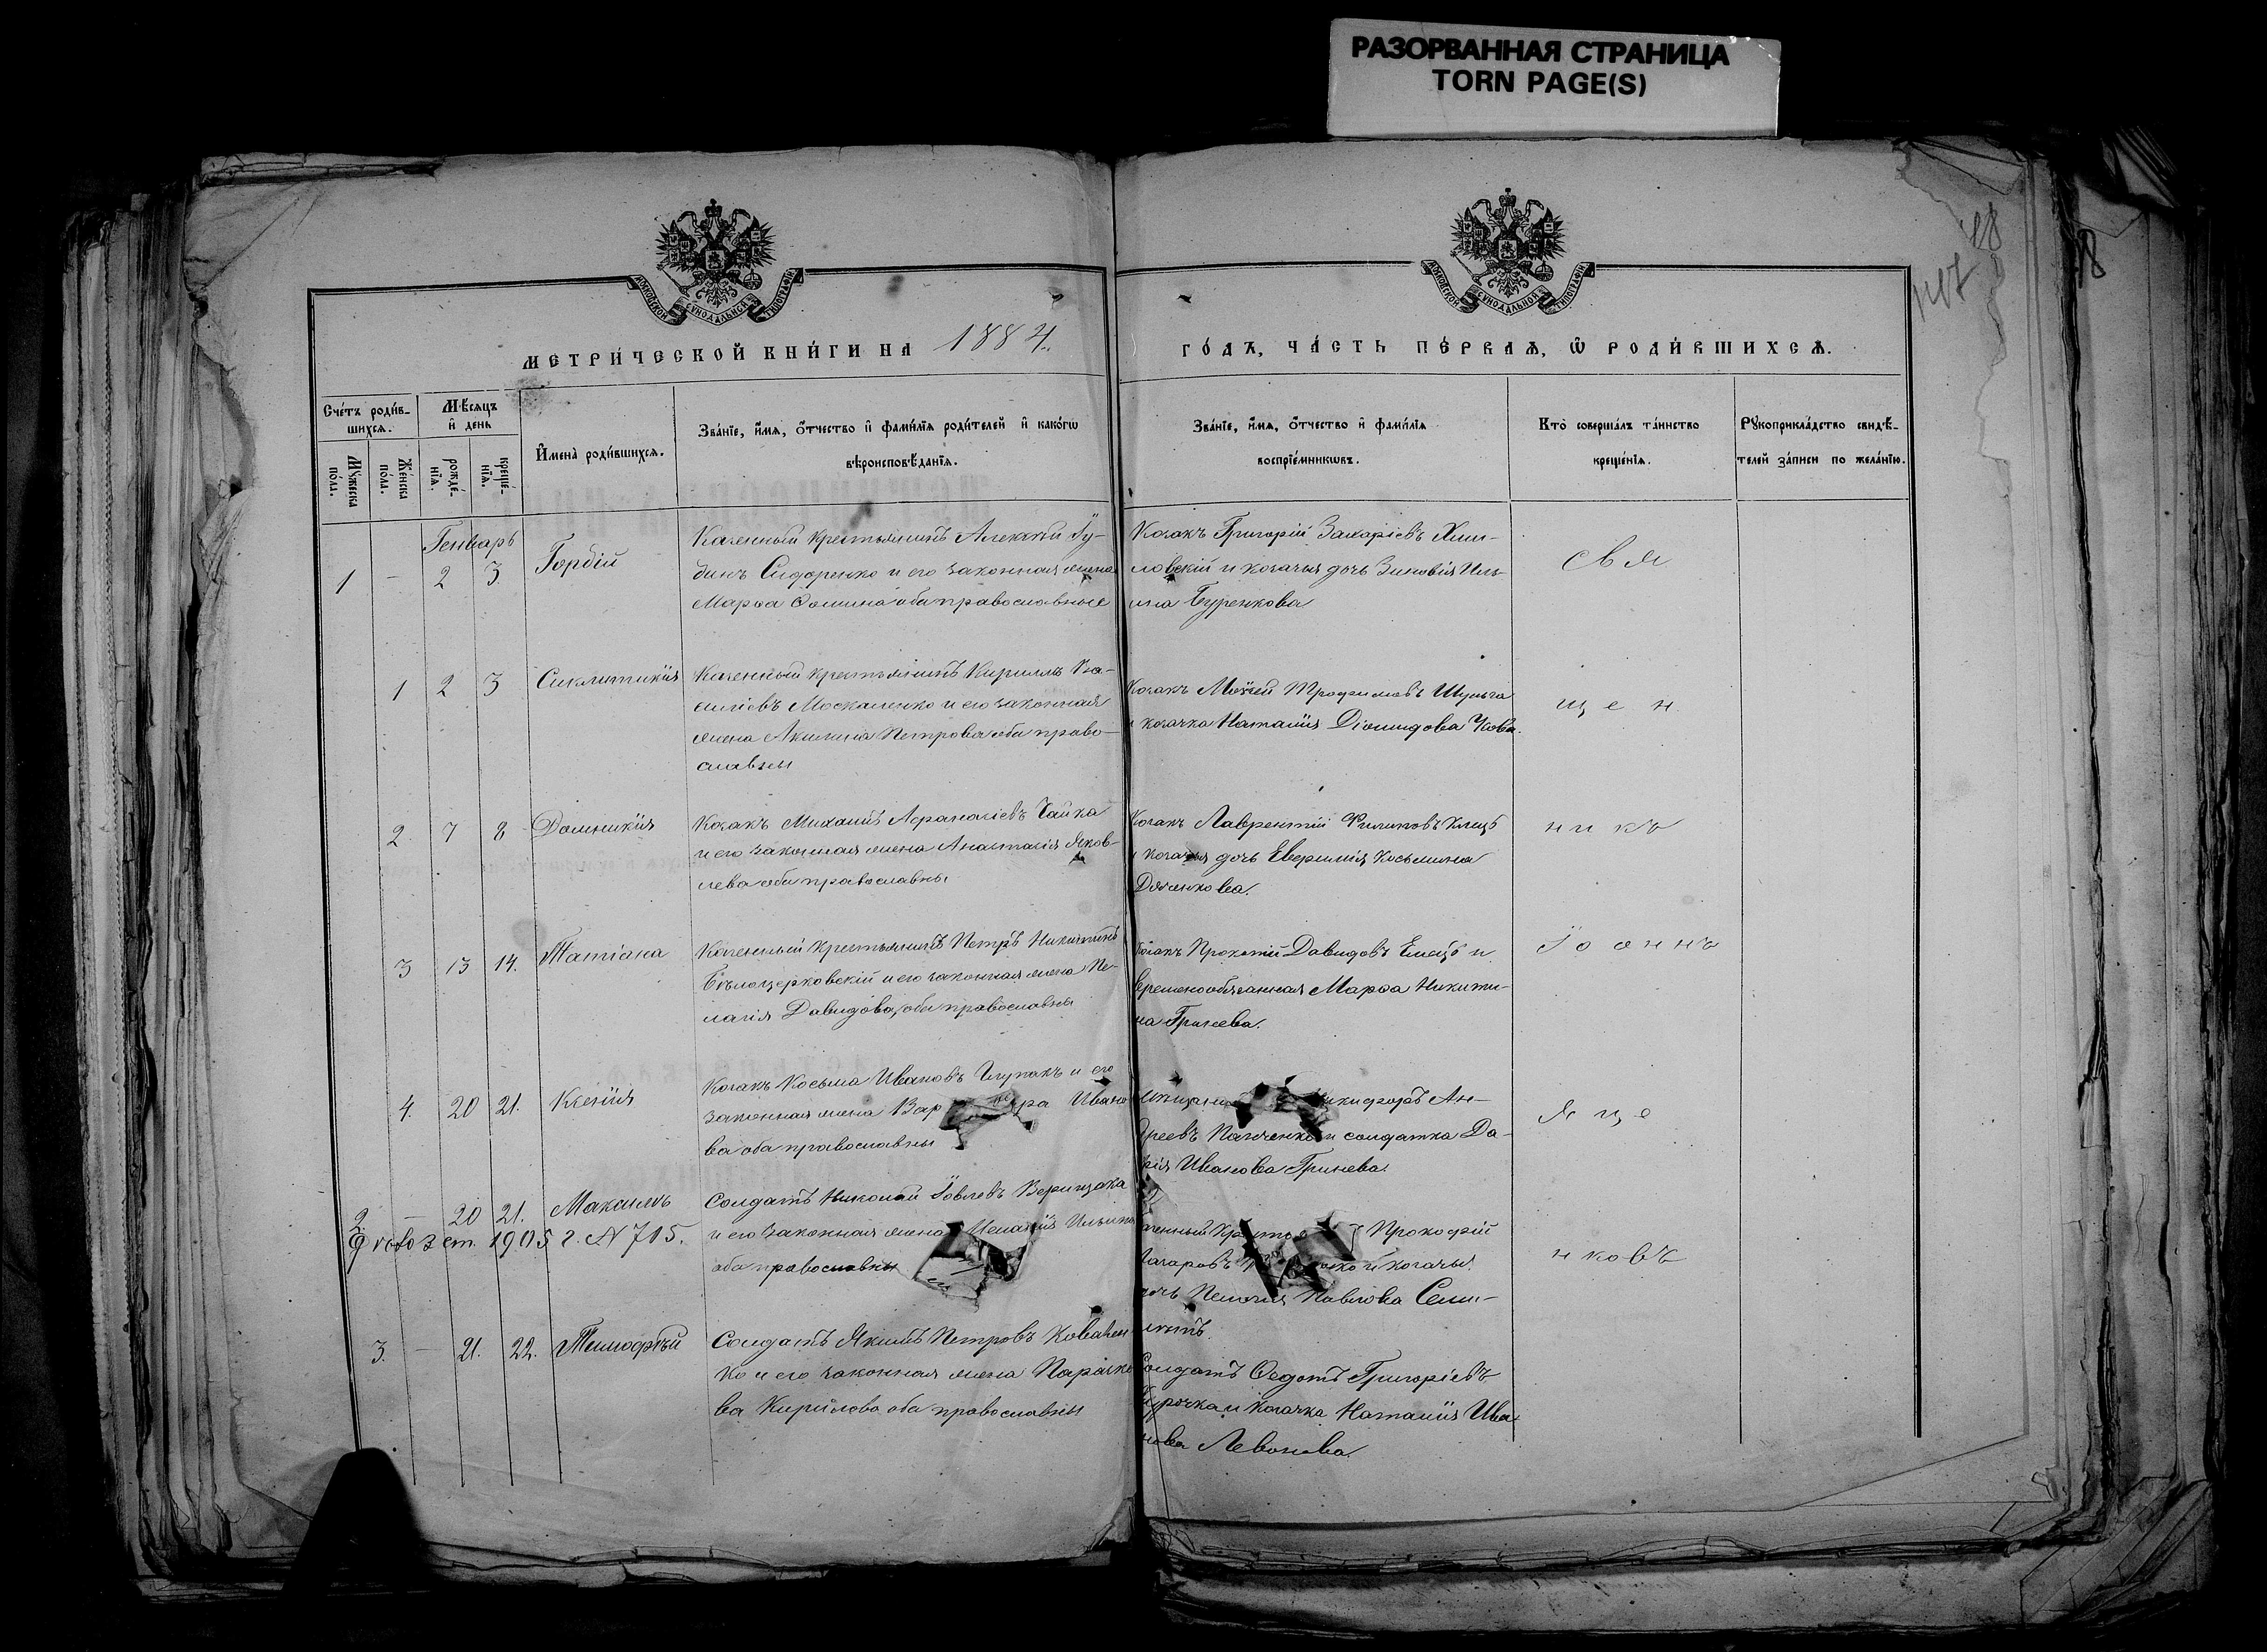 РАЗОРВАННАЯ СТРАНИЦА
TORN PAGE(S)
18
147
МОСКОВСКОЙ СѴНОДАЛЬНОЙ ТИПОГРАФІИ
МОСКОВСКОЙ СѴНОДАЛЬНОЙ ТИПОГРАФІИ
МЕТРИ́ЧЕСКОЙ КНИ́ГИ НА 1884.
ГО́ДЪ, ЧА́СТЬ ПЕ́РВАѦ, Ѡ҆ РОДИ́ВШИХСѦ.
Сче́тъ роди́в-
шихсѧ.
Мꙋ́жеска
по́ла.
Же́нска
по́ла.
Мѣ́сѧцъ
и҆ де́нь
рожде́-
нїѧ.
креще́-
нїѧ.
И҆мена̀ роди́вшихсѧ.
Зва́нїе, и҆́мѧ, ѻ҆́тчество и҆ фами́лїѧ роди́телей и҆ како́гѡ
вѣроисповѣ́данїѧ.
Зва́нїе, и҆́мѧ, ѻ҆́тчество и҆ фами́лїѧ
воспрїе́мникѡвъ.
Кто̀ соверша́лъ та́инство
креще́нїѧ.
Рꙋкоприкла́дство свидѣ́-
телей за́писи по жела́нїю.
Генварь
1 – 2 3 Гордій
Казенный крестьянинъ Алексѣй Гу-
динъ Сидоренко и его законная жена
Марѳа Ѳомина оба православные
Козакъ Григорій Захаріевъ Хми-
ловскій и козачья дочь Зиновія Иль-
ина Буренкова
Свя
1 2 3 Сиклитикія
Казенный крестьянинъ Кириллъ Ва-
силіевъ Москаленко и его законная
жена Акилина Петрова оба право-
славны
Козакъ Моѵсей Трофимовъ Шульга
и козачка Наталія Діомидова
щен
2. 7 8 Домникія
Козакъ Михаилъ Аѳанасіевъ Чайка
и его законная жена Анастасія Яков-
лева оба православны
Козакъ Лаврентій Филиповъ
и козачья дочь Евфимія Косьмина
Дяченкова.
никъ
3 13 14. Татіана
Казенный крестьянинъ Петръ Никитинъ
Бѣлоцерковскій и его законная жена Пе-
лагія Давидова, оба православны
Козакъ Прокопій Давидовъ Емецъ и
временнообязанная Марѳа Никити-
на Гринева.
Іоаннъ
4. 20 21. Ксенія
Козакъ Косьма Ивановъ и его
законная жена Вар ра Ивано
ва оба православны
икифоръ Ан-
дреевъ Панченко и солдатка Да-
рія Иванова Гринева.
Яще
2 – 20 21. Максимъ
Солдатъ Николай Іовлевъ Верищака
и его законная жена Меланія Ильина
оба православны
ст. 1905 г. N 715.
Казенный Крестья Прокофій
Захаровъ ко и козачья
дочь Пелагія Павлова Семи-
лѣтъ.
нковъ
3. – 21. 22. Тимофѣй
Солдатъ Якимъ Петровъ Ковален
ко и его законная жена Параске
ва Кирилова оба православны
Солдатъ Ѳедотъ Григоріевъ
Курочка и Козачка Наталія Ива-
нова Левонова.